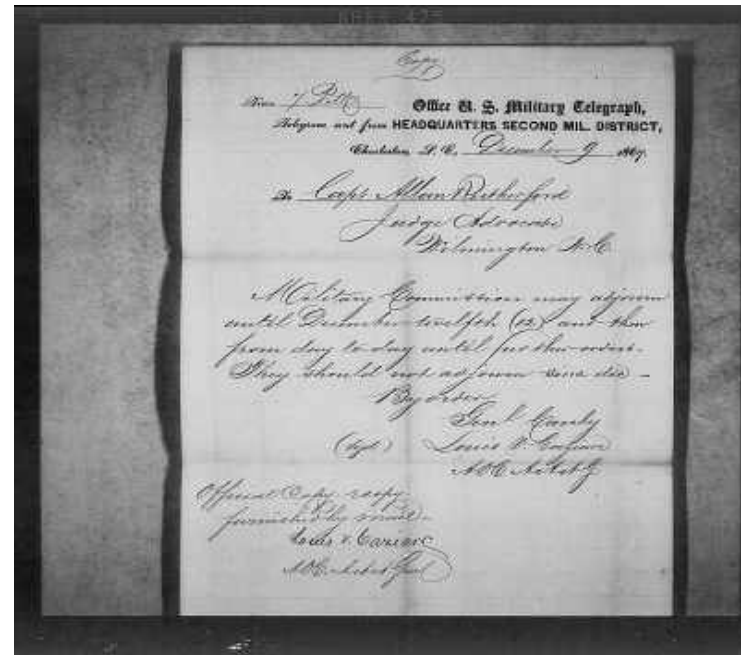 Copy
Office U. S. Military Telegraph,
Telegram sent from HEADQUARTERS SECOND MIL. DISTRICT,
Charleston, S. C. December 9 1867.
To Capt Allan Rutherford
Judge Advocate
Wilmington N.C.
Military Commission may adjourn
until December twelfth (12) and then
from day to day until further orders.
They should not adjourn sine die -
By order
Genl Canby
Louis V. Caziarc
ADC
Official Copy
furnished by mail.
Louis V. Caziarc
ADC